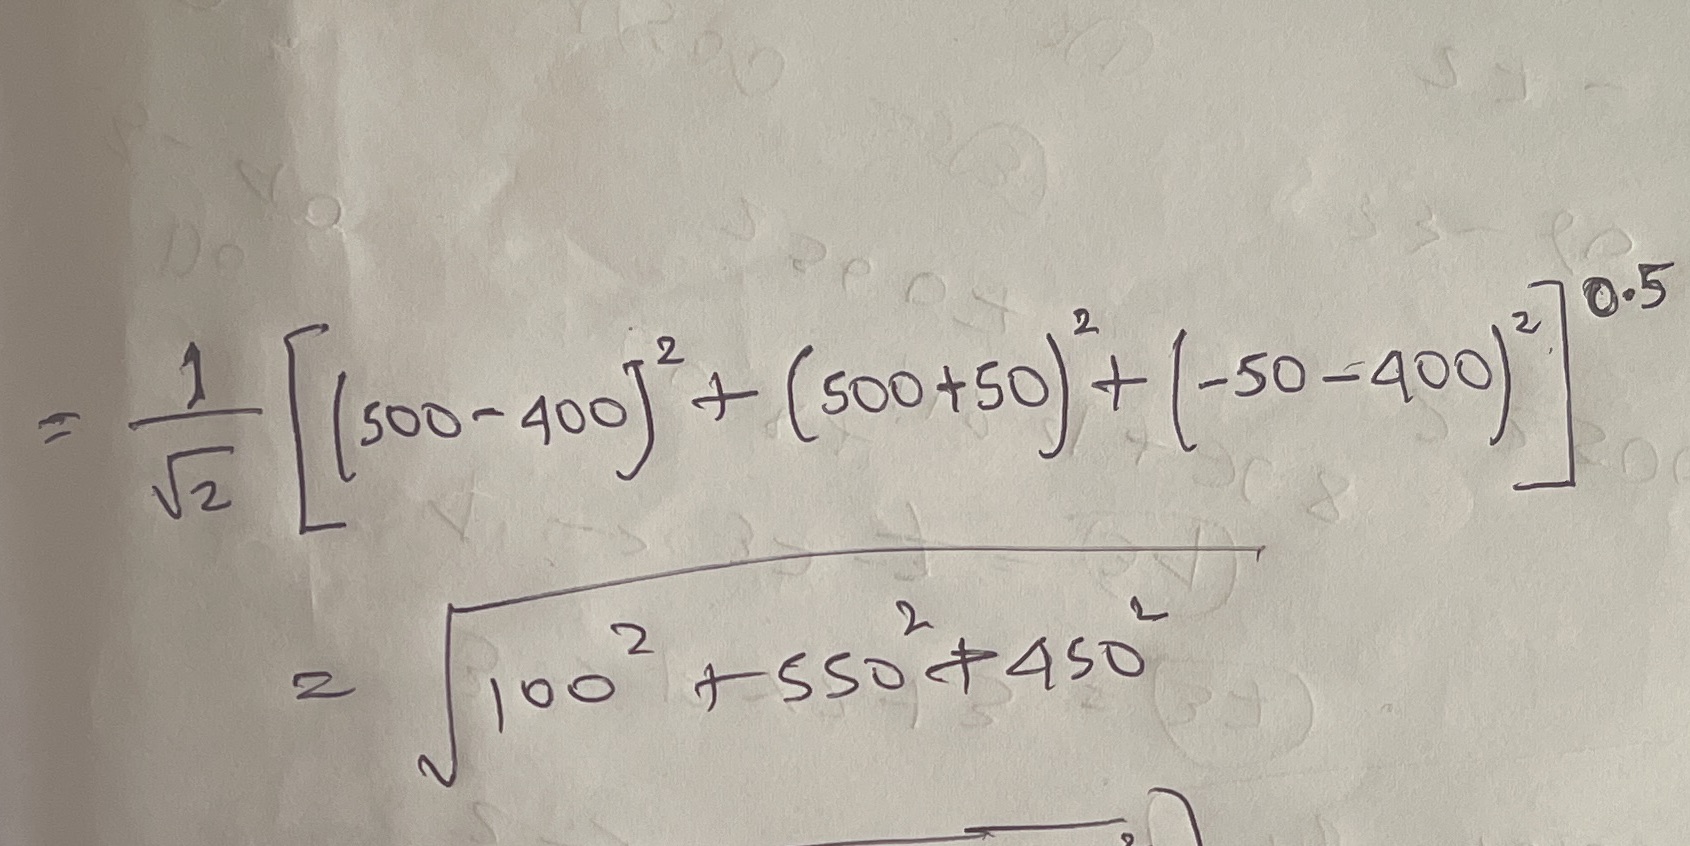 = 1/√2 [(500-400)² + (500+50)² + (-50-400)²]^0.5
= √(100² + 550² + 450²)